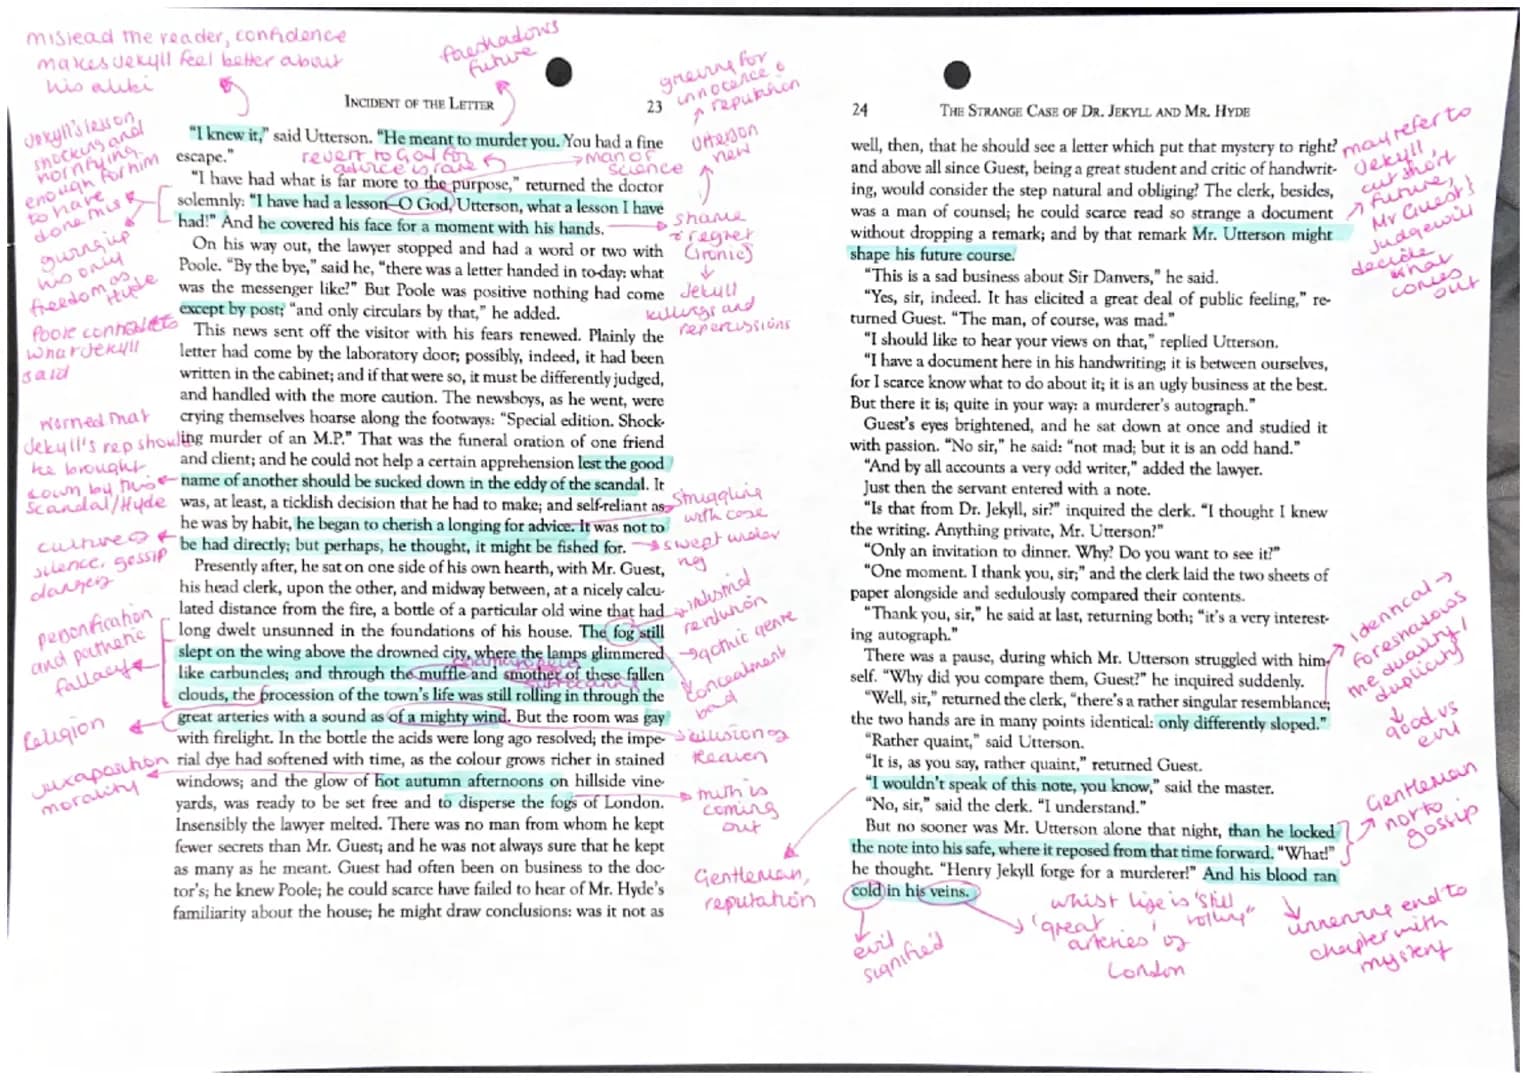 mislead the reader, confidence
makes Jekyll feel better about
his alibi
foreshadows
future
grieving for
innocence &
reputation
Utterson
new
INCIDENT OF THE LETTER
23
"I knew it," said Utterson. "He meant to murder you. You had a fine
escape."
revert to God for
advice is rare
man of
science
"I have had what is far more to the purpose," returned the doctor
solemnly: "I have had a lesson—O God, Utterson, what a lesson I have
had!" And he covered his face for a moment with his hands.
Jekyll's lesson
shocking and
horrifying
enough for him
to have
done this
giving up
his only
freedom as
Hyde
shame
& regret
(ironic)
Jekyll
killings and
repercussions
On his way out, the lawyer stopped and had a word or two with
Poole. "By the bye," said he, "there was a letter handed in to-day: what
was the messenger like?" But Poole was positive nothing had come
except by post; "and only circulars by that," he added.
Poole
what Jekyll
said
This news sent off the visitor with his fears renewed. Plainly the
letter had come by the laboratory door; possibly, indeed, it had been
written in the cabinet; and if that were so, it must be differently judged,
and handled with the more caution. The newsboys, as he went, were
crying themselves hoarse along the footways: "Special edition. Shock-
ing murder of an M.P." That was the funeral oration of one friend
and client; and he could not help a certain apprehension lest the good
name of another should be sucked down in the eddy of the scandal. It
was, at least, a ticklish decision that he had to make; and self-reliant as
he was by habit, he began to cherish a longing for advice. It was not to
be had directly; but perhaps, he thought, it might be fished for.
worried that
Jekyll's rep should
be brought
down by this
scandal/Hyde
culture of
silence, gossip
danger
struggling
with case
swept under
rug
Presently after, he sat on one side of his own hearth, with Mr. Guest,
his head clerk, upon the other, and midway between, at a nicely calcu-
lated distance from the fire, a bottle of a particular old wine that had
long dwelt unsunned in the foundations of his house. The fog still
slept on the wing above the drowned city, where the lamps glimmered
like carbuncles; and through the muffle and smother of these fallen
clouds, the procession of the town's life was still rolling in through the
great arteries with a sound as of a mighty wind. But the room was gay
with firelight. In the bottle the acids were long ago resolved; the impe-
rial dye had softened with time, as the colour grows richer in stained
windows; and the glow of hot autumn afternoons on hillside vine-
yards, was ready to be set free and to disperse the fogs of London.
Insensibly the lawyer melted. There was no man from whom he kept
fewer secrets than Mr. Guest; and he was not always sure that he kept
as many as he meant. Guest had often been on business to the doc-
tor's; he knew Poole; he could scarce have failed to hear of Mr. Hyde's
familiarity about the house; he might draw conclusions: was it not as
personification
and pathetic
fallacy
Religion
juxtaposition
morality
industrial
revolution
gothic genre
concealment
bad
suffocating
illusion of
Heaven
truth is
coming
out
Gentleman,
reputation
24
THE STRANGE CASE OF DR. JEKYLL AND MR. HYDE
well, then, that he should see a letter which put that mystery to right?
and above all since Guest, being a great student and critic of handwrit-
ing, would consider the step natural and obliging? The clerk, besides,
was a man of counsel; he could scarce read so strange a document
without dropping a remark; and by that remark Mr. Utterson might
shape his future course.
may refer to
Jekyll,
cut short
future,
Mr Guest's
judge will
decide
what
comes
out
"This is a sad business about Sir Danvers," he said.
"Yes, sir, indeed. It has elicited a great deal of public feeling," re-
turned Guest. "The man, of course, was mad."
"I should like to hear your views on that," replied Utterson.
"I have a document here in his handwriting; it is between ourselves,
for I scarce know what to do about it; it is an ugly business at the best.
But there it is; quite in your way: a murderer's autograph."
Guest's eyes brightened, and he sat down at once and studied it
with passion. "No sir," he said: "not mad; but it is an odd hand."
"And by all accounts a very odd writer," added the lawyer.
Just then the servant entered with a note.
"Is that from Dr. Jekyll, sir?" inquired the clerk. "I thought I knew
the writing. Anything private, Mr. Utterson?"
"Only an invitation to dinner. Why? Do you want to see it?"
"One moment. I thank you, sir;" and the clerk laid the two sheets of
paper alongside and sedulously compared their contents.
"Thank you, sir," he said at last, returning both; "it's a very interest-
ing autograph."
There was a pause, during which Mr. Utterson struggled with him-
self. "Why did you compare them, Guest?" he inquired suddenly.
"Well, sir," returned the clerk, "there's a rather singular resemblance;
the two hands are in many points identical: only differently sloped."
identical
foreshadows
the duality/
duplicity
good vs
evil
"Rather quaint," said Utterson.
"It is, as you say, rather quaint," returned Guest.
"I wouldn't speak of this note, you know," said the master.
"No, sir," said the clerk. "I understand."
But no sooner was Mr. Utterson alone that night, than he locked
the note into his safe, where it reposed from that time forward. "What!"
he thought. "Henry Jekyll forge for a murderer!" And his blood ran
cold in his veins.
Gentleman
not to
gossip
evil
signified
whist life is 'still
rolling"
'great
arteries' of
London
unnerving end to
chapter with
mystery